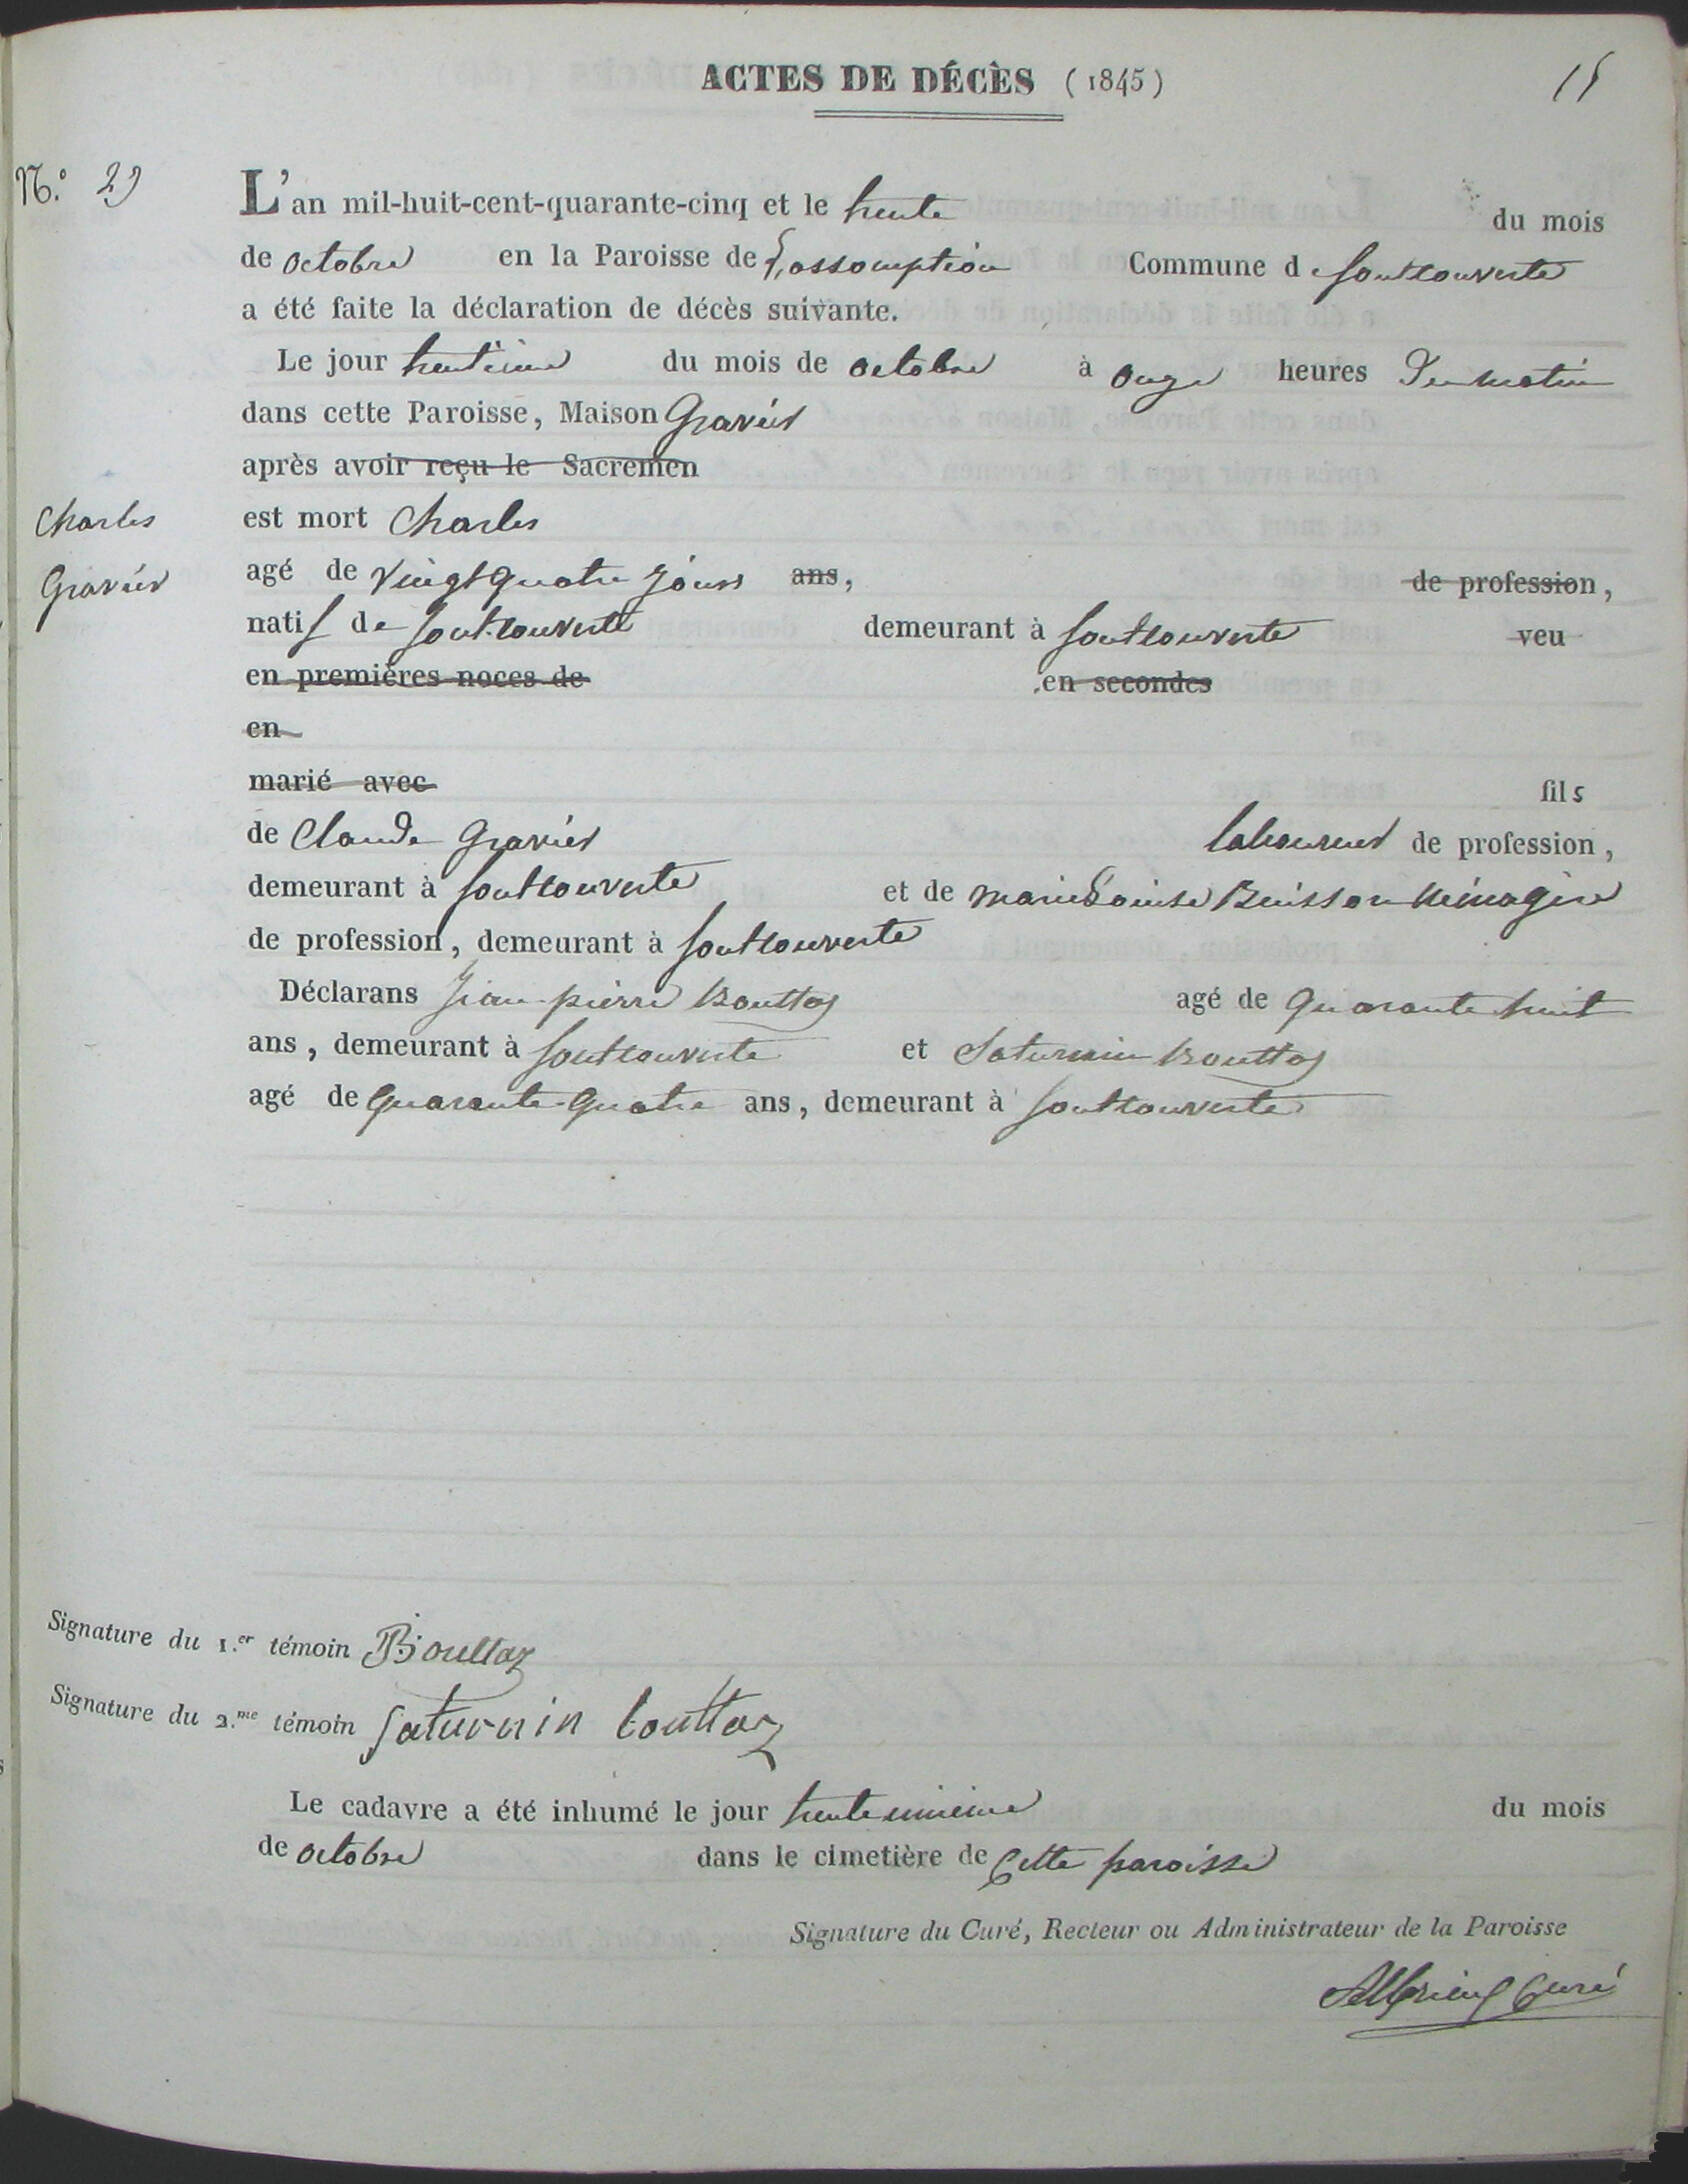 ACTES DE DÉCÈS (1845)
15
N.o 29
L'an mil-huit-cent-quarante-cinq et le trente du mois
de octobre en la Paroisse de L'assomption Commune de pontcouverte
a été faite la déclaration de décès suivante.
Le jour trentième du mois de octobre à onze heures Du matin
dans cette Paroisse, Maison Gravier
après avoir reçu le Sacremen
Charles
Gravier
est mort Charles
agé de vingt quatre jours ans, de profession,
natif de fontcouverte demeurant à fontcouverte veu
en premières noces de en secondes
en
marié avec fils
de Claude Gravier laboureur de profession,
demeurant à fontcouverte et de marie Louise Buisson Ménagère
de profession, demeurant à fontcouverte
Déclarans Jean-pierre Bouttaz agé de quarante huit
ans, demeurant à fontcouverte et Saturnin Bouttaz
agé de quarante-quatre ans, demeurant à fontcouverte
Signature du 1.er témoin Bouttaz
Signature du 2.me témoin Saturnin bouttaz
Le cadavre a été inhumé le jour trente unième du mois
de octobre dans le cimetière de Cette paroisse
Signature du Curé, Recteur ou Administrateur de la Paroisse
Curé